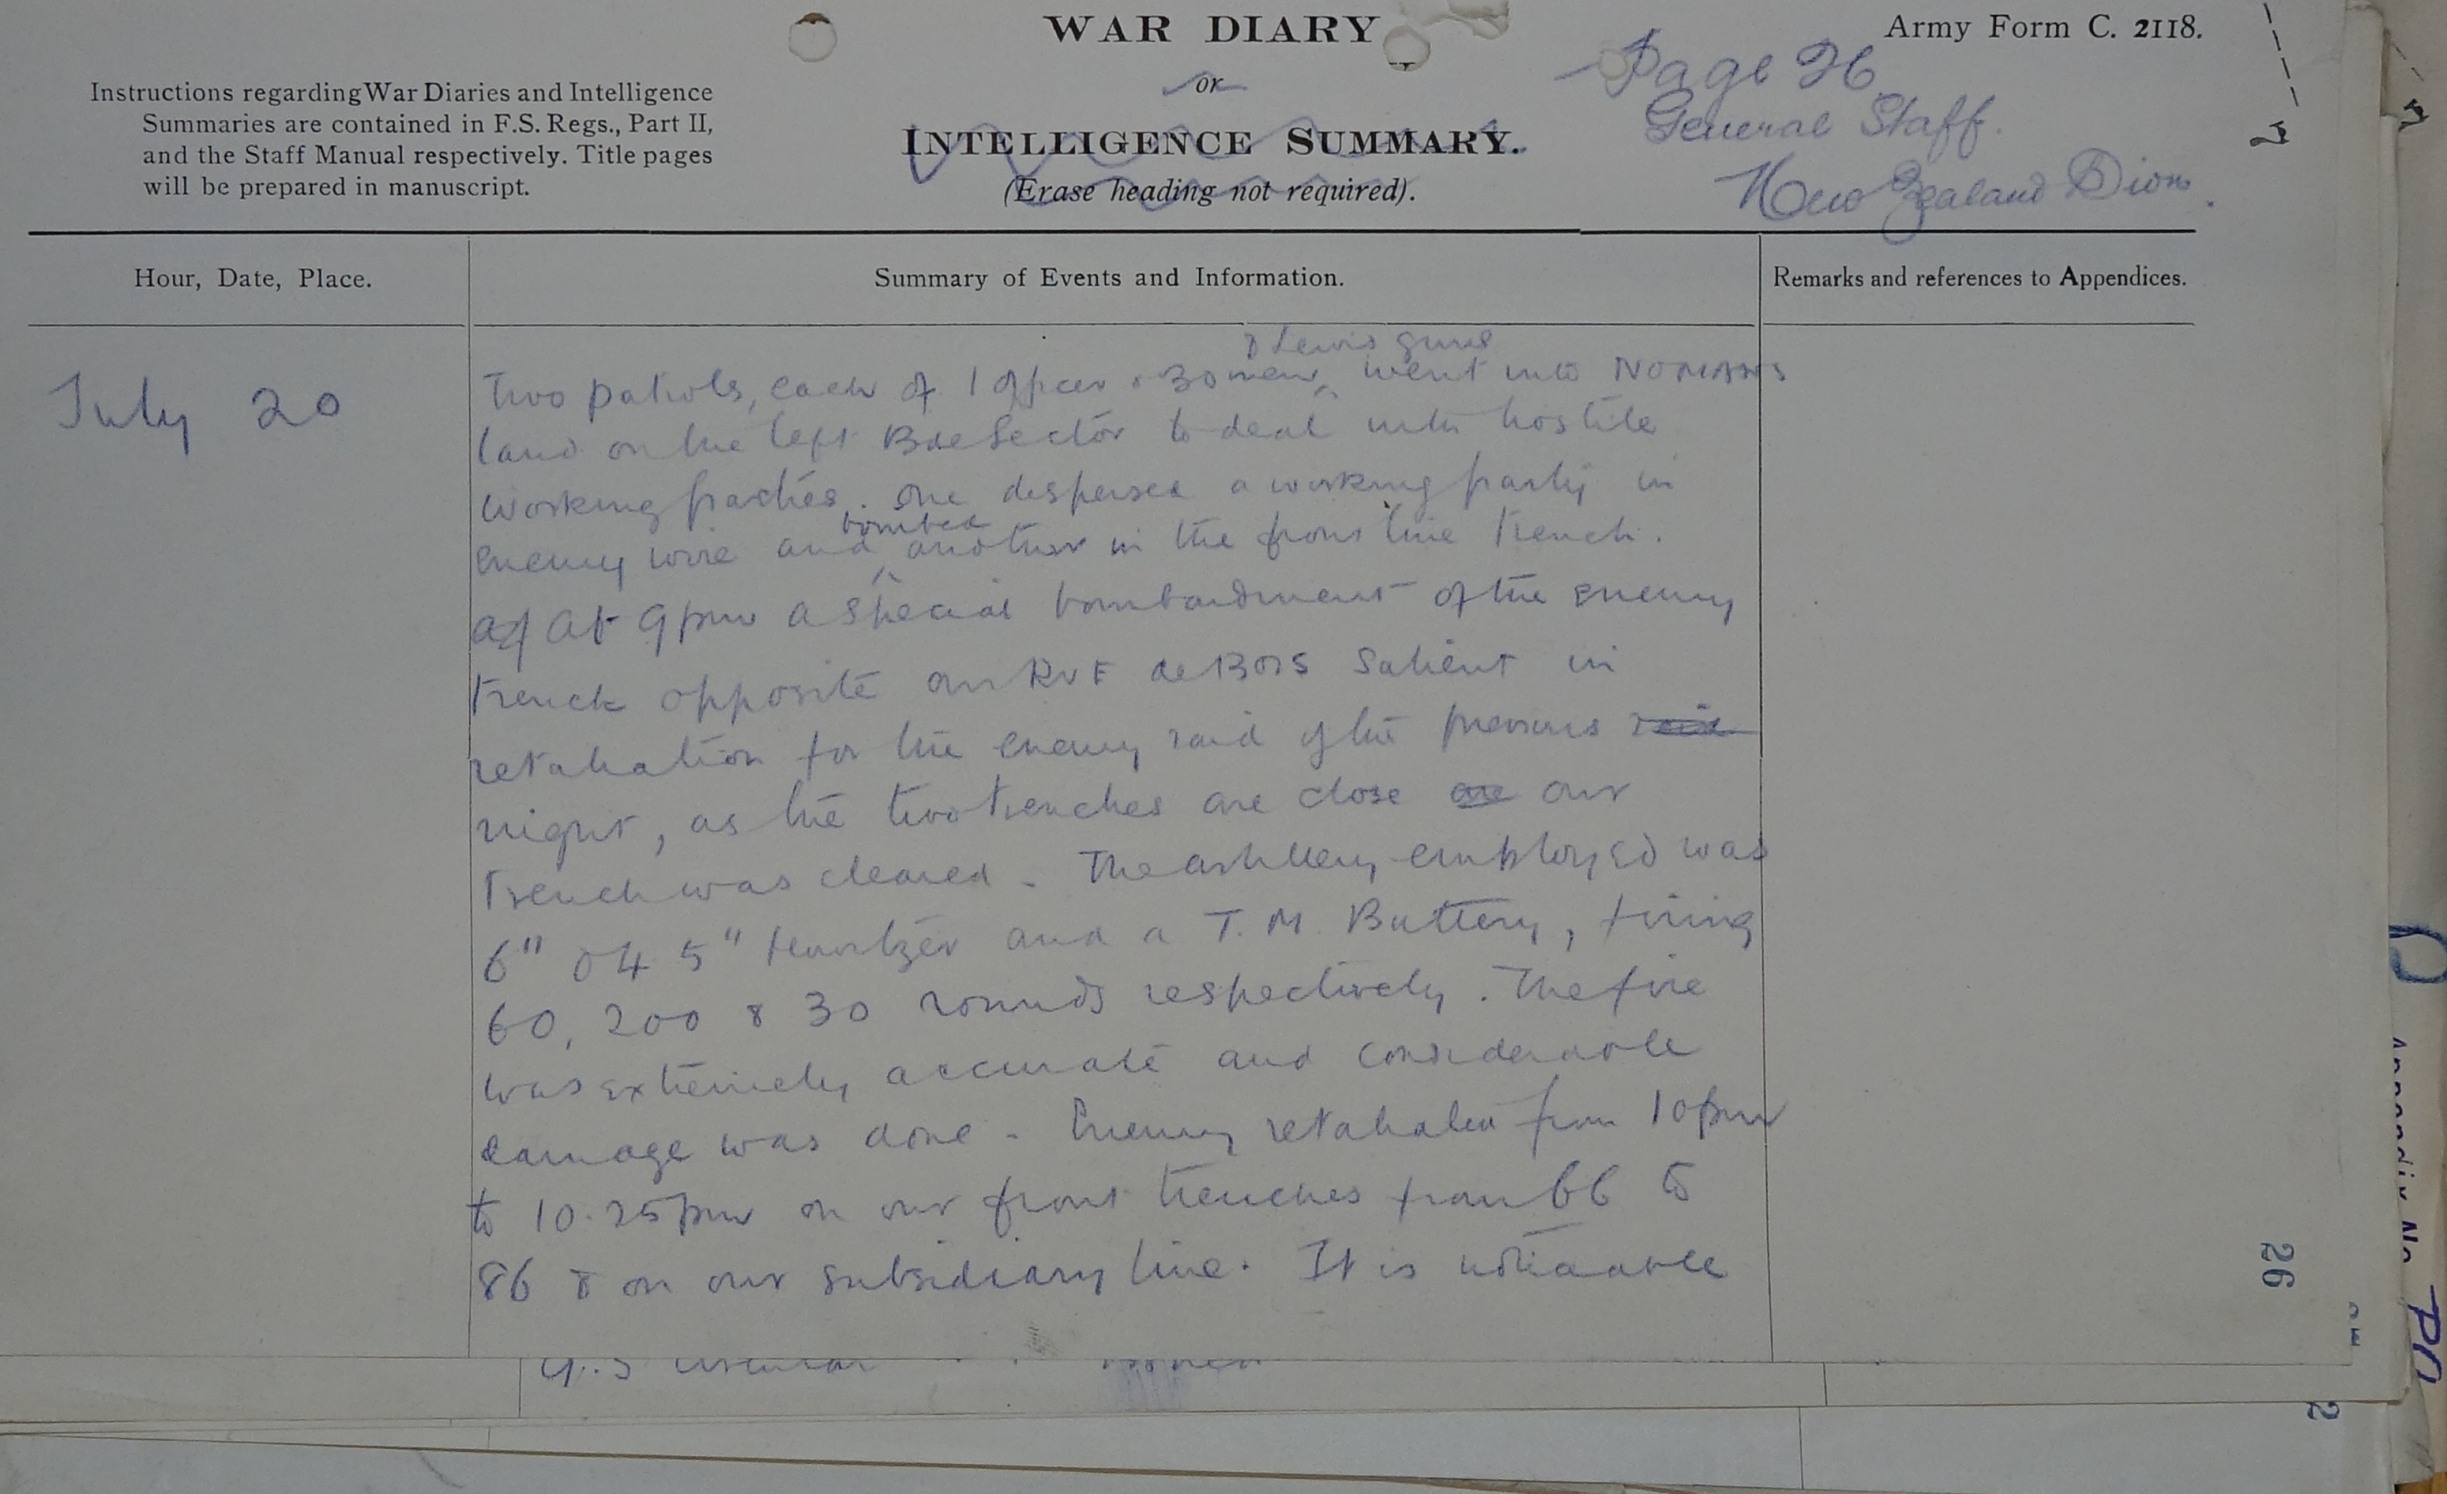 WAR DIARY
or
INTELLIGENCE SUMMARY.
(Erase heading not required).
Army Form C. 2118.
Instructions regarding War Diaries and Intelligence
Summaries are contained in F.S. Regs., Part II,
and the Staff Manual respectively. Title pages
will be prepared in manuscript.
Page 26
General Staff.
New Zealand Divn.
Hour, Date, Place.
Summary of Events and Information.
Remarks and references to Appendices.
July 20
& Lewis guns
Two patrols, each of 1 officer & 30 men went into NOMANS
land on the left Bde Sector to deal with hostile
working parties. One dispersed a working party in
bombed
enemy wire and another in the front line trench.
At 9 pm a special bombardment of the enemy
trench opposite our RUE de BOIS Salient in
retaliation for the enemy raid of the previous raid
night, as the two trenches are close are our
trench was cleared. The artillery employed was
6" 4 5" Howitzer and a T.M. Battery, firing
60, 200 & 30 rounds respectively. The fire
was extremely accurate and considerable
damage was done - Enemy retaliated from 10 pm
to 10.25 pm on our front trenches from 66 to
86 & on our subsidiary line. It is noticeable
26
G.S circular issued
Appendix No
2